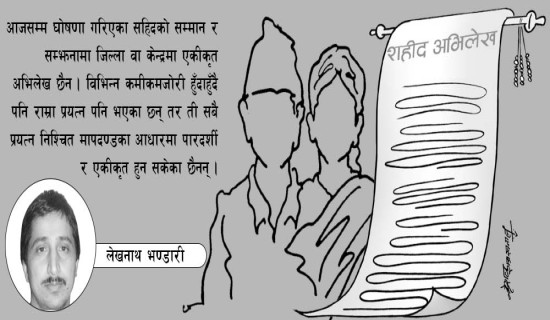 आजसम्म घोषणा गरिएका सहिदको सम्मान र
सम्झनामा जिल्ला वा केन्द्रमा एकीकृत
अभिलेख छैन । विभिन्न कमीकमजोरी हुँदाहुँदै
पनि राम्रा प्रयत्न पनि भएका छन् तर ती सबै
प्रयत्न निश्चित मापदण्डका आधारमा पारदर्शी
र एकीकृत हुन सकेका छैनन् ।
शहीद अभिलेख
लेखनाथ भण्डारी